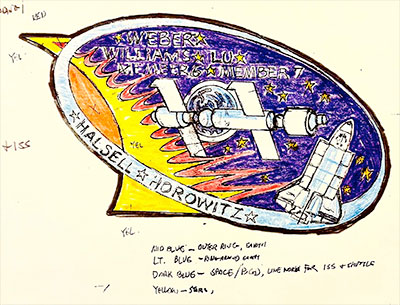 RED
YEL
WEBER
WILLIAMS LU
MEMBER 6 MEMBER 7
+ ISS
YEL
HALSELL ☆ HOROWITZ ☆
YEL.
MID BLUE - OUTER RING, EARTH
LT. BLUE - EARTH
DARK BLUE - SPACE/BKGD, LINE WORK FOR ISS + SHUTTLE
YELLOW - STARS,